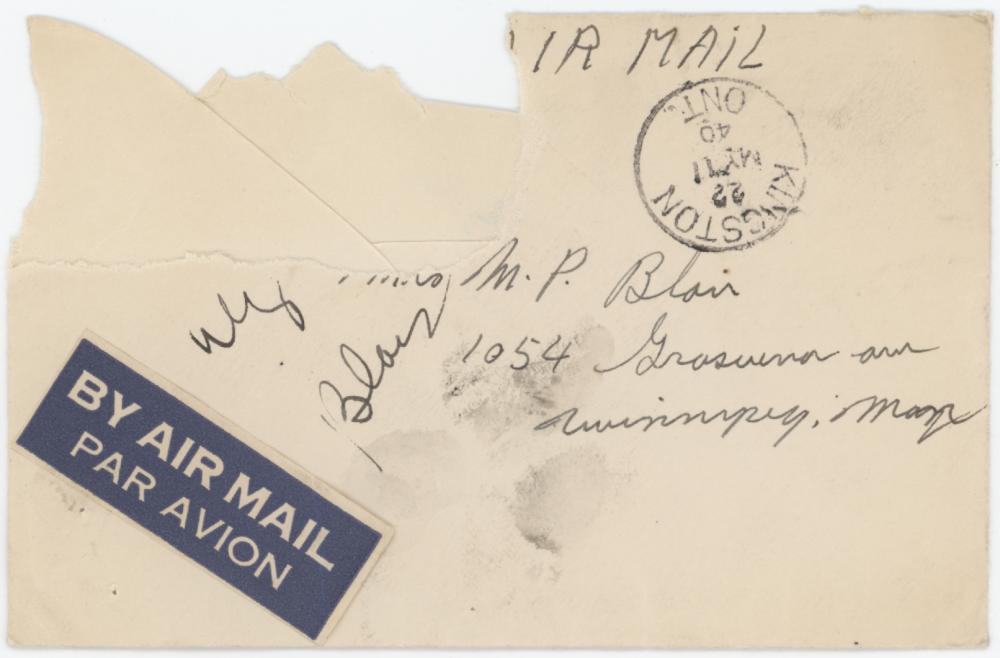 AIR MAIL
KINGSTON
22
MY 11
40
ONT.
Mrs M. P. Blair
1054 Grosvenor ave
Winnipeg, Man
Blair
BY AIR MAIL
PAR AVION